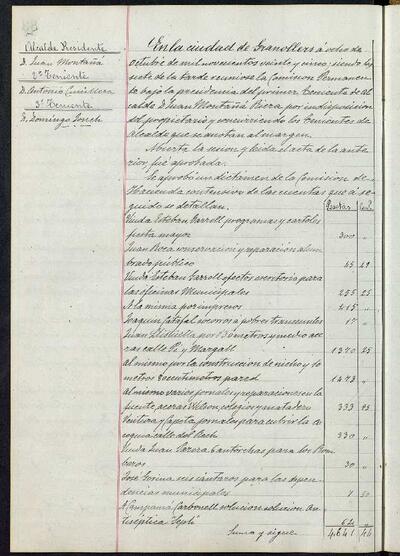 Alcalde Presidente
D. Juan Montañá
2º Teniente
D. Antonio Cumellera
3º Teniente
D. Domingo Jorch
En la ciudad de Granollers á ocho de
octubre de mil novecientos veinte y cinco; siendo las
siete de la tarde reunióse la Comision Permanen
te bajo la presidencia del primer Teniente de Al
calde D. Juan Montañá Riera por indisposición
del propietario y concurriendo los Tenientes de
Alcalde que se anotan al margen.
Abierta la sesion y leida el acta de la ante
rior, fué aprobada.
Se aprobó un dictamen de la Comisión de
Hacienda contensivo de las cuentas que á se
guido se detallan. Pesetas Cents
Viuda Esteban Garrell, programas y carteles
fiesta mayor 300 "
Juan Roca conservación y reparación alum
brado público 45 49
Viuda Esteban Garrell efectos escritorio para
las oficinas Municipales 255 25
A la misma por impresos 415 "
Joaquin Catafal socorros á pobres transeuntes 17 "
Juan por 136 metros y medio ace
ras calle Pi y Margall 1370 25
al mismo por la construccion de nicho y
metros pared 1473 "
al mismo varios jornales y reparaciones en la
fuente, aceras, colegios y matadero 333 95
Ventura y Capeta jornales para cubrir la a
cequia calle del Rech 330 "
Viuda Juan Parera antorchas para los Bom
beros 30 "
José seis cántaros para las depen
dencias municipales 7 50
A Campamá Carbonell solucion solucion An
tiséptica
Suma y sigue 4.641 44